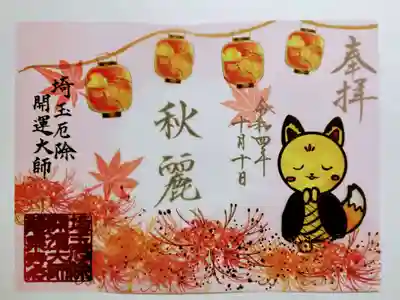 奉拝
令和四年
十月十日
秋麗
埼玉厄除
開運大師